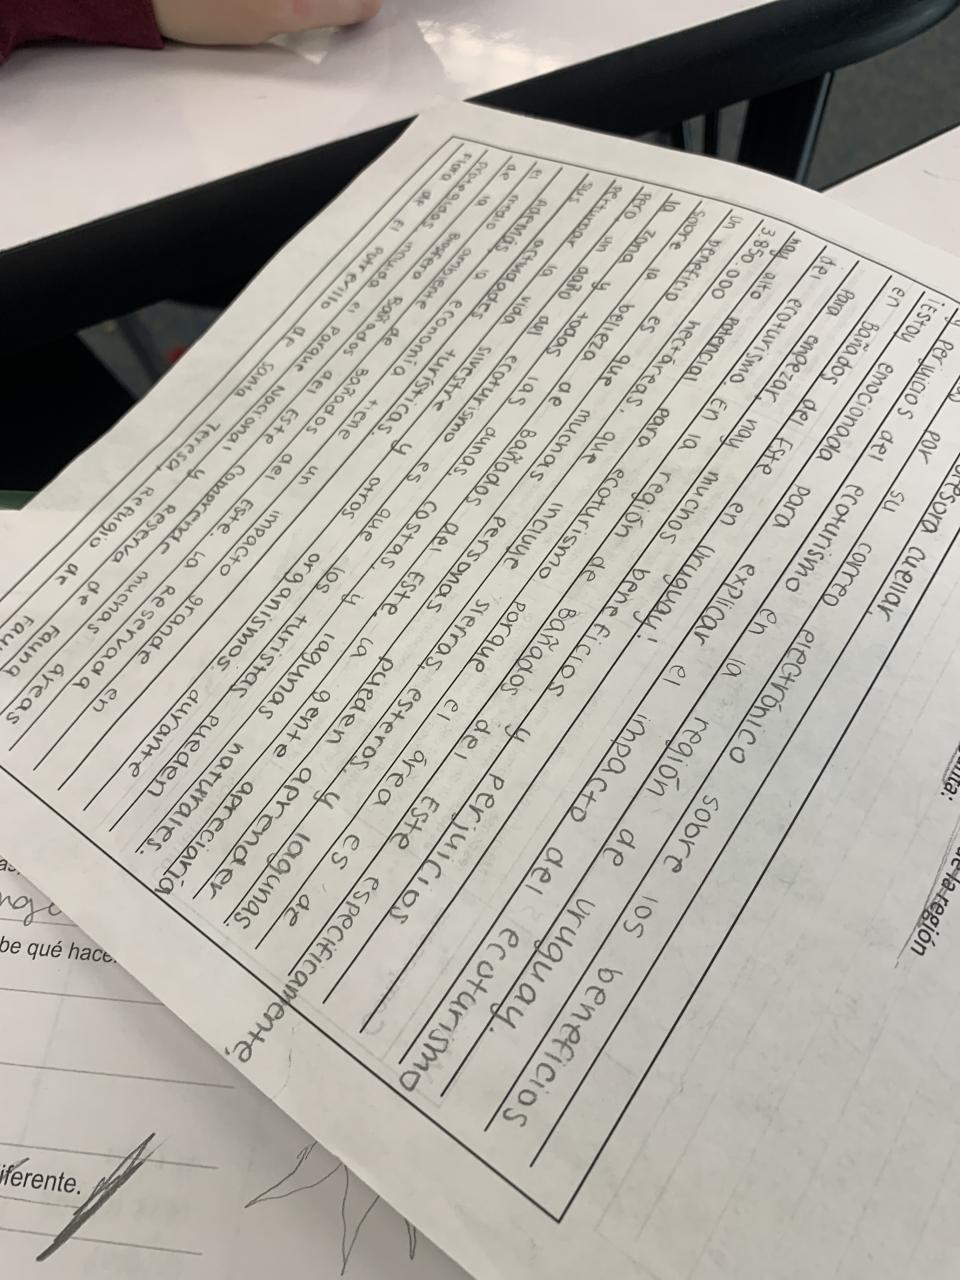 rofesora Cuellar,
por su correo electrónico sobre los beneficios
y perjuicios del ecoturismo en la región de Uruguay.
¡Estoy emocionada para explicar el impacto del ecoturismo
en Bañados del Este en Uruguay!
Para empezar, hay muchos beneficios y perjuicios
del ecoturismo. En la región de Bañados del Este específicamente,
hay alto potencial para ecoturismo porque el área es de
3.850.000 hectáreas, que incluye sierras, esteros, y lagunas.
Un beneficio es que muchas personas pueden aprender
sobre la belleza de Bañados del Este. La gente apreciaría
la zona y todas las dunas, costas, y lagunas naturales.
Pero un daño del ecoturismo es que los turistas pueden
perturbar la vida silvestre y otros organismos durante
sus actividades turísticas.
Además, la economía tiene un impacto grande en
el medio ambiente Bañados del Este. La Reservada
de la Biosfera Bañados del Este comprende muchas áreas
protegidas, incluida el Parque Nacional y Reserva de Fauna
Flora de El Potrerillo de Santa Teresa, Refugio de Fau
de la región
be qué hace.
iferente.